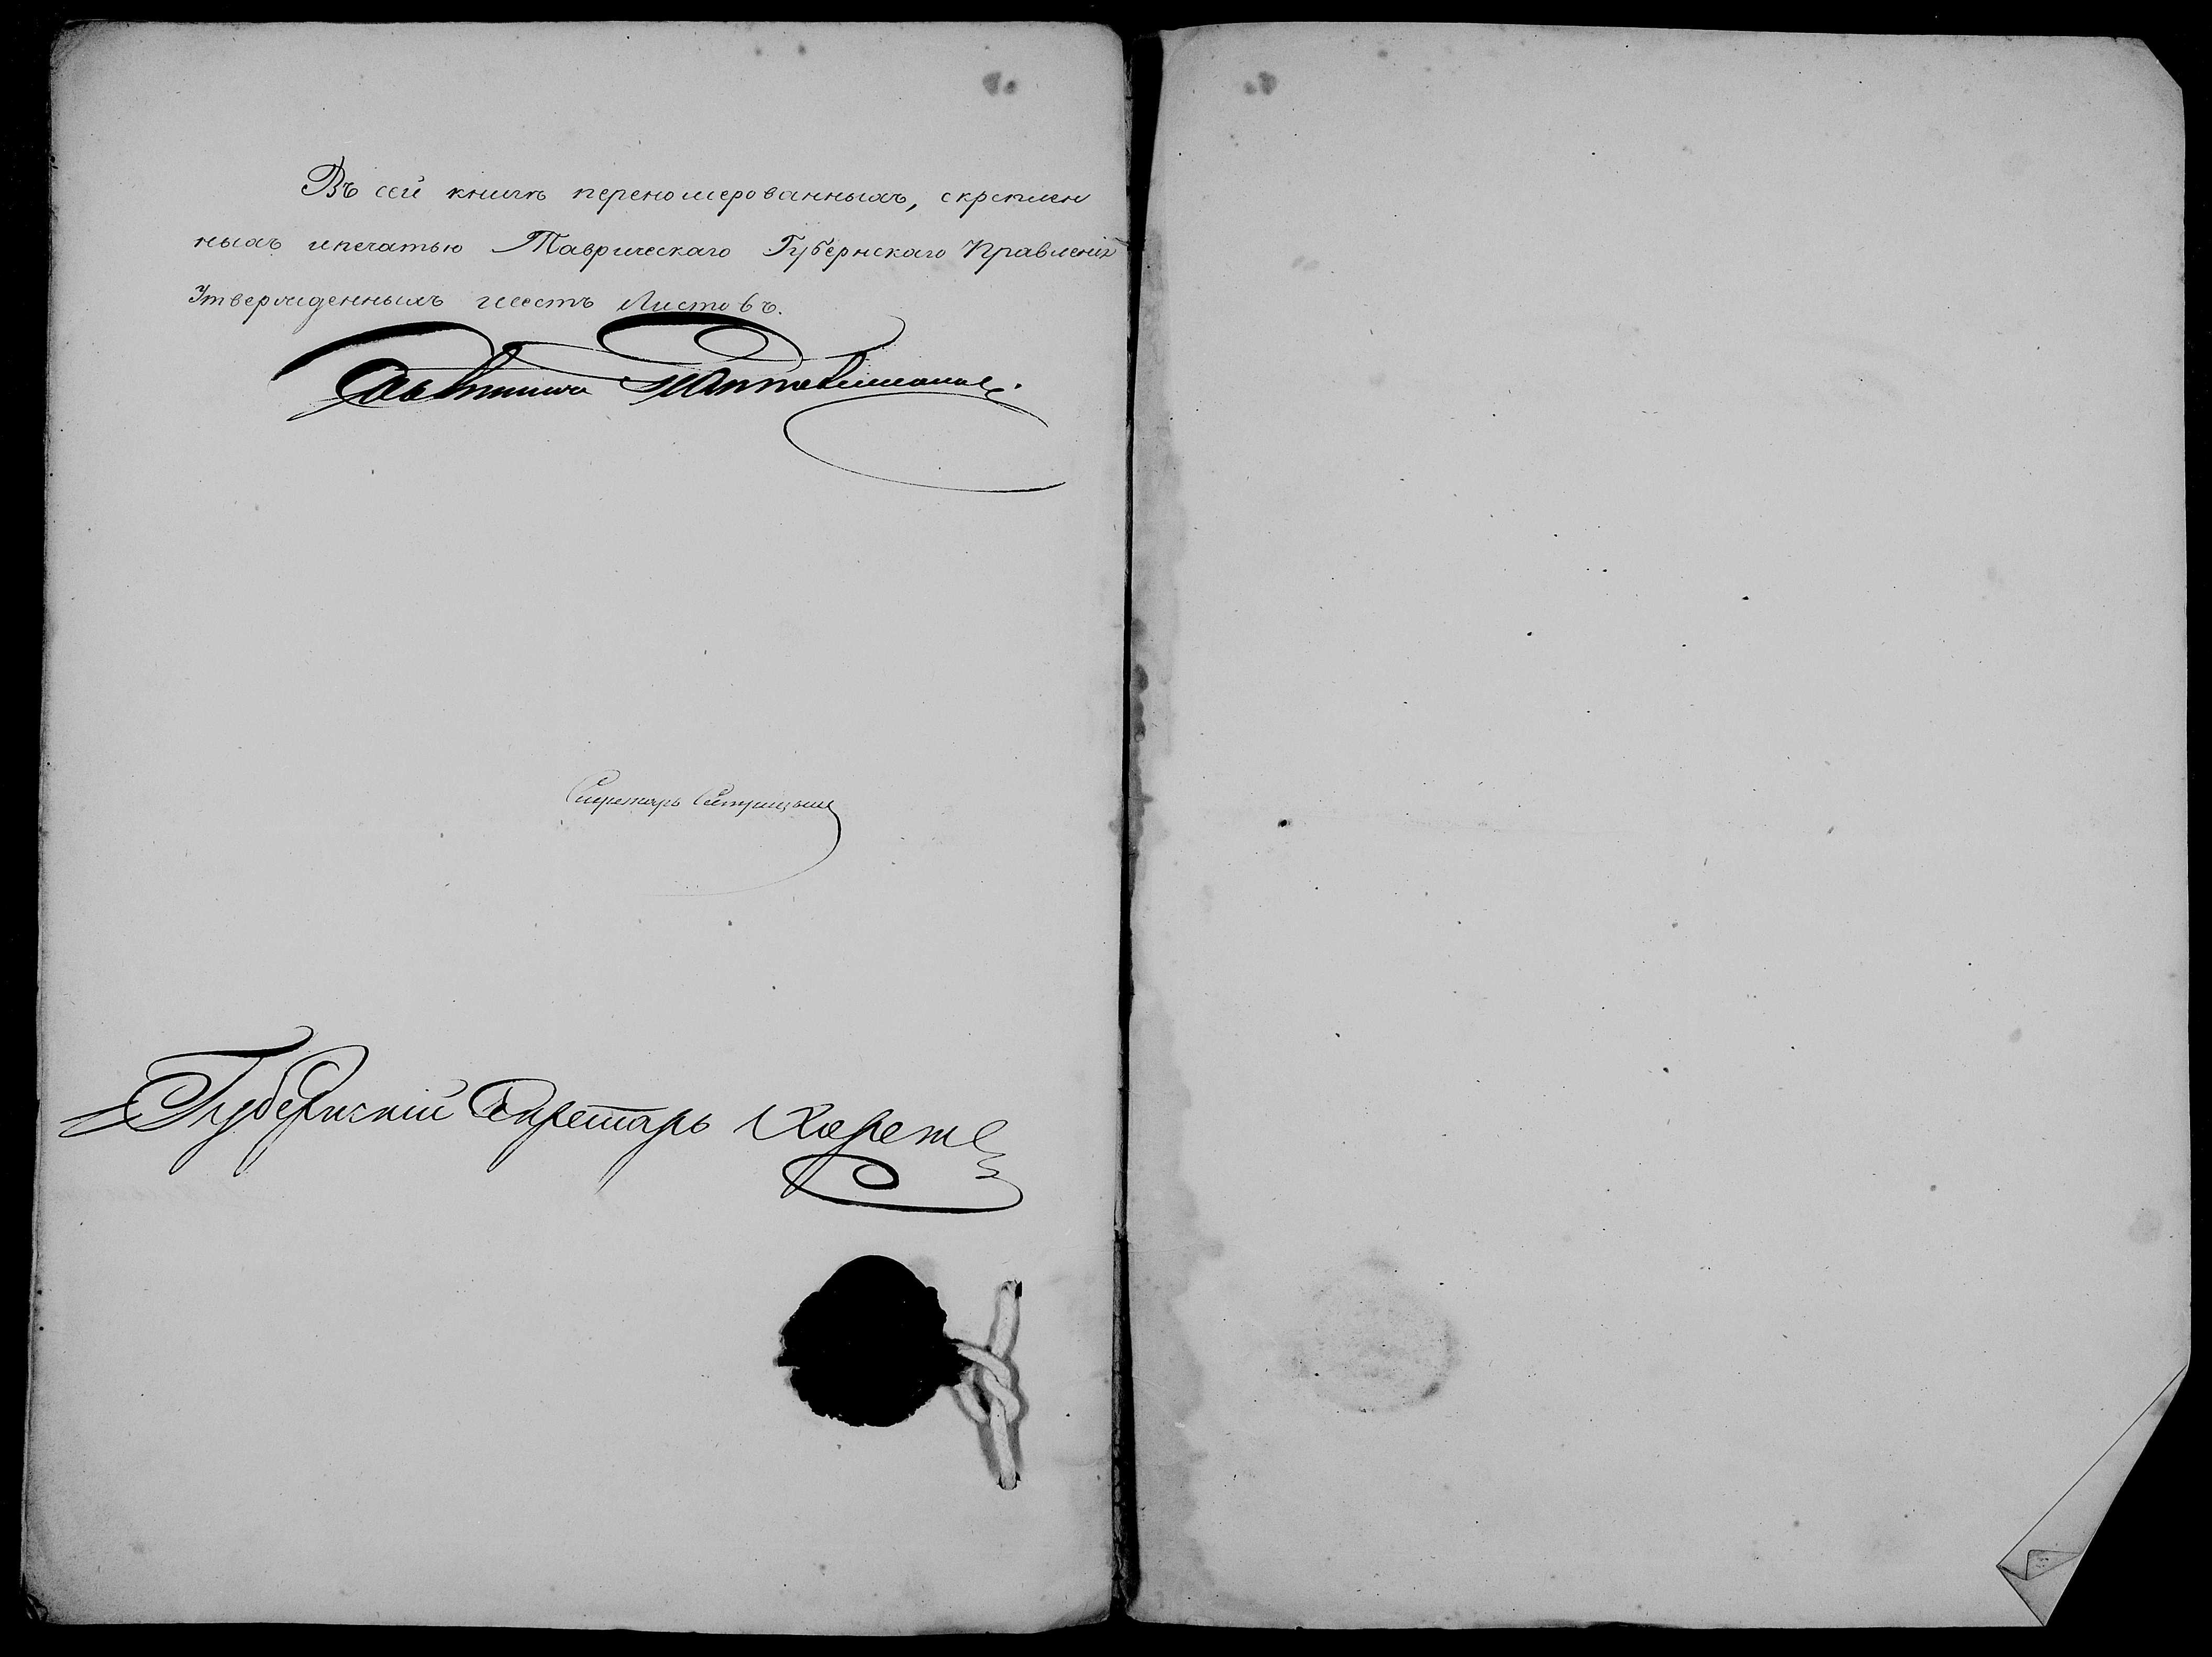 Въ сей книгѣ переномерованныхъ, скреплен
ныхъ ипечатью Таврическаго Губернскаго Правленія
Утвержденныхъ шесть Листовъ.
Совѣтникъ
Секретарь
Губернскій Секретарь